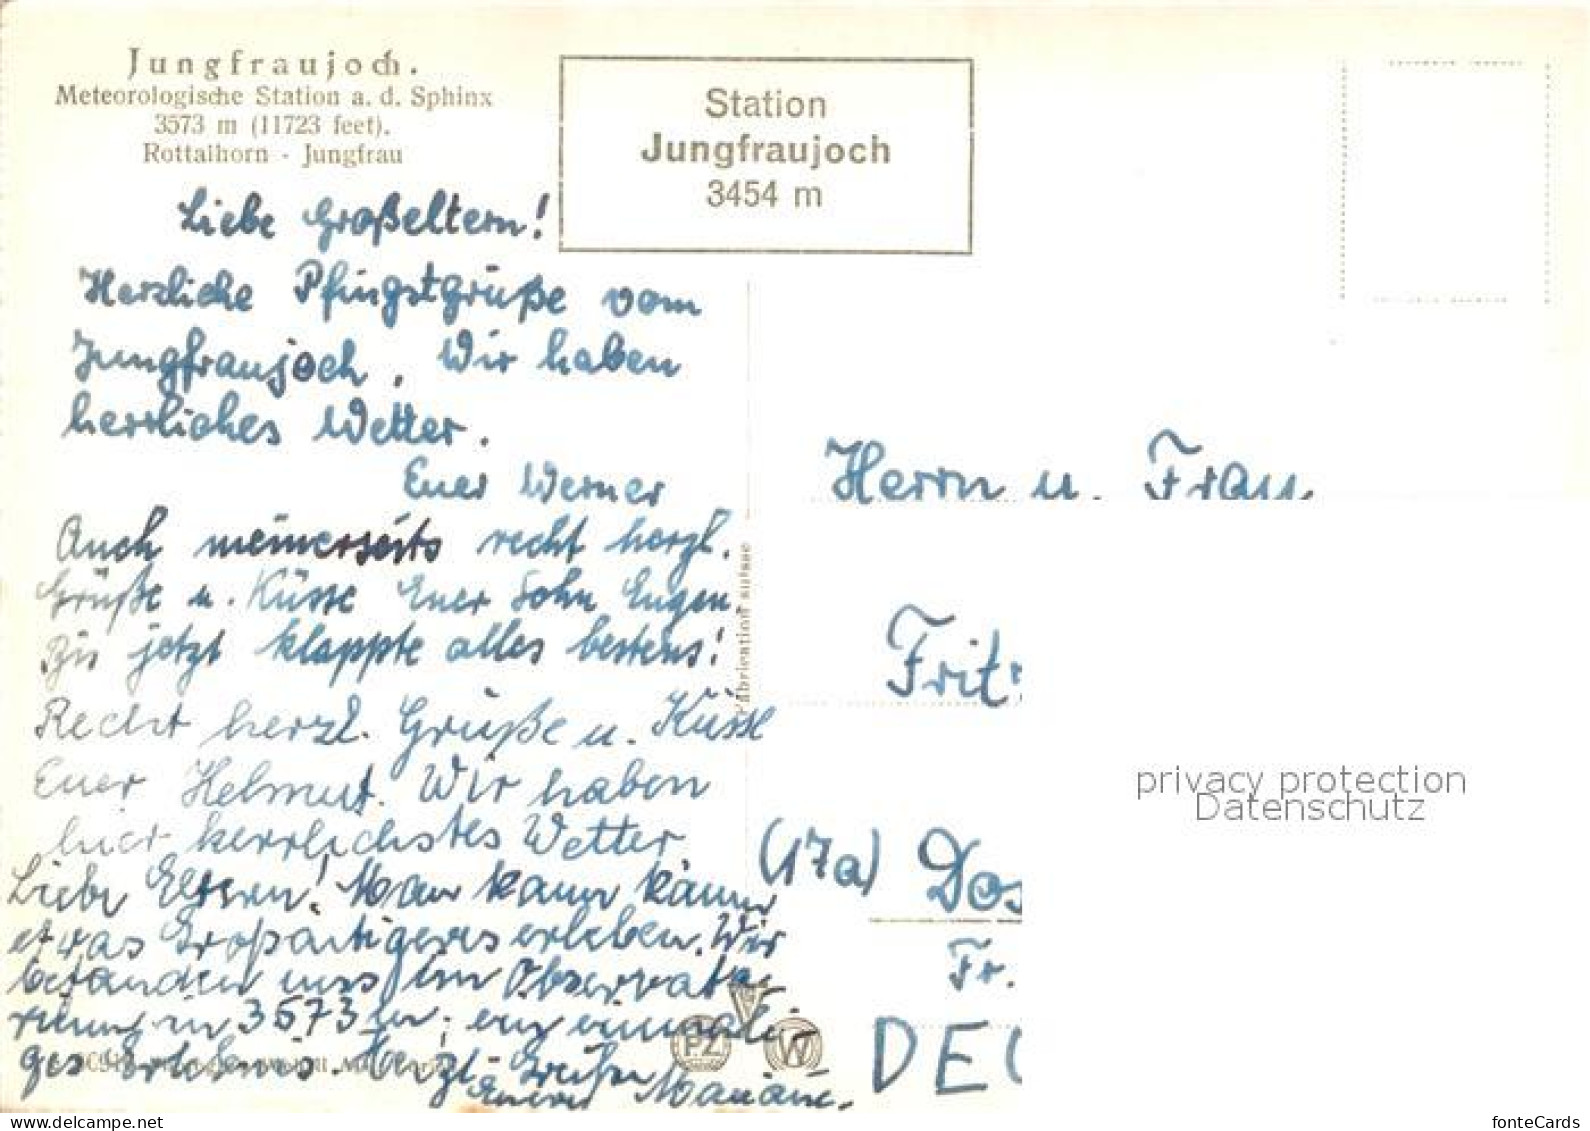 Jungfraujoch.
Meteorologische Station a. d. Sphinx
3573 m (11723 feet).
Rottalhorn - Jungfrau
Station
Jungfraujoch
3454 m
Liebe Großeltern!
Herzliche Pfingstgrüße vom
Jungfraujoch. Wir haben
herrliches Wetter.
Euer Werner
Auch meinerseits recht herzl.
Grüße u. Küsse Euer Sohn Eugen
Bis jetzt klappte alles bestens!
Recht herzl. Grüße u. Küsse
Euer Helmut. Wir haben
hier herrlichstes Wetter
Liebe Eltern! Man kann kaum
etwas Großartigeres erleben. Wir
befanden uns im Observato-
rium in 3573 m, ein einmali-
ges Erlebnis. Herzl. Grüße
Eurer Mariane.
Fabrication suisse
PZ
W
Herrn u. Frau
Frit
(17a) Dos
Fr.
DE
privacy protection
Datenschutz
www.delcampe.net
fonteCards